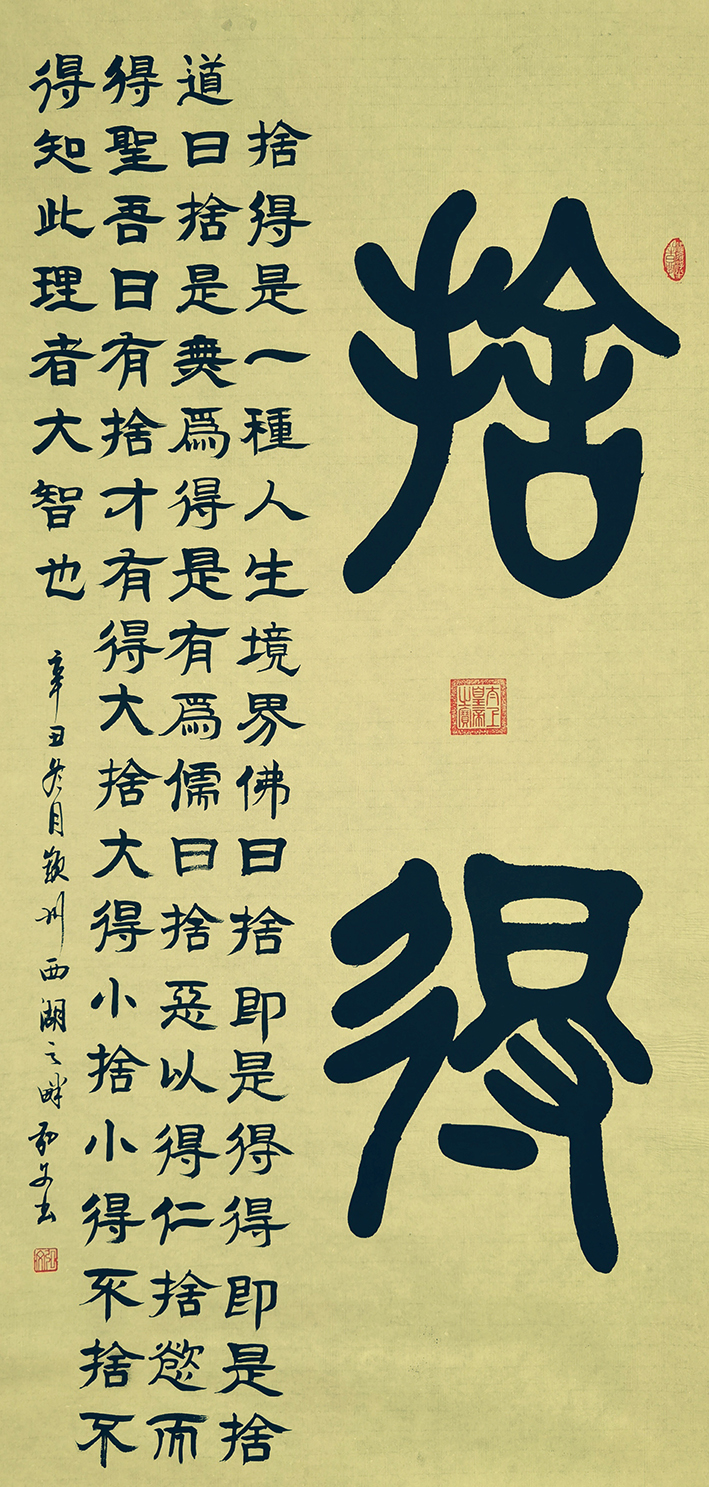 捨
得
捨得是一種人生境界佛曰捨即是得得即是捨
道曰捨是無爲得是有爲儒曰捨惡以得仁捨慾而
得聖吾曰有捨才有得大捨大得小捨小得不捨不
得知此理者大智也
辛丑冬月潁州西湖之畔
太上皇帝之寶